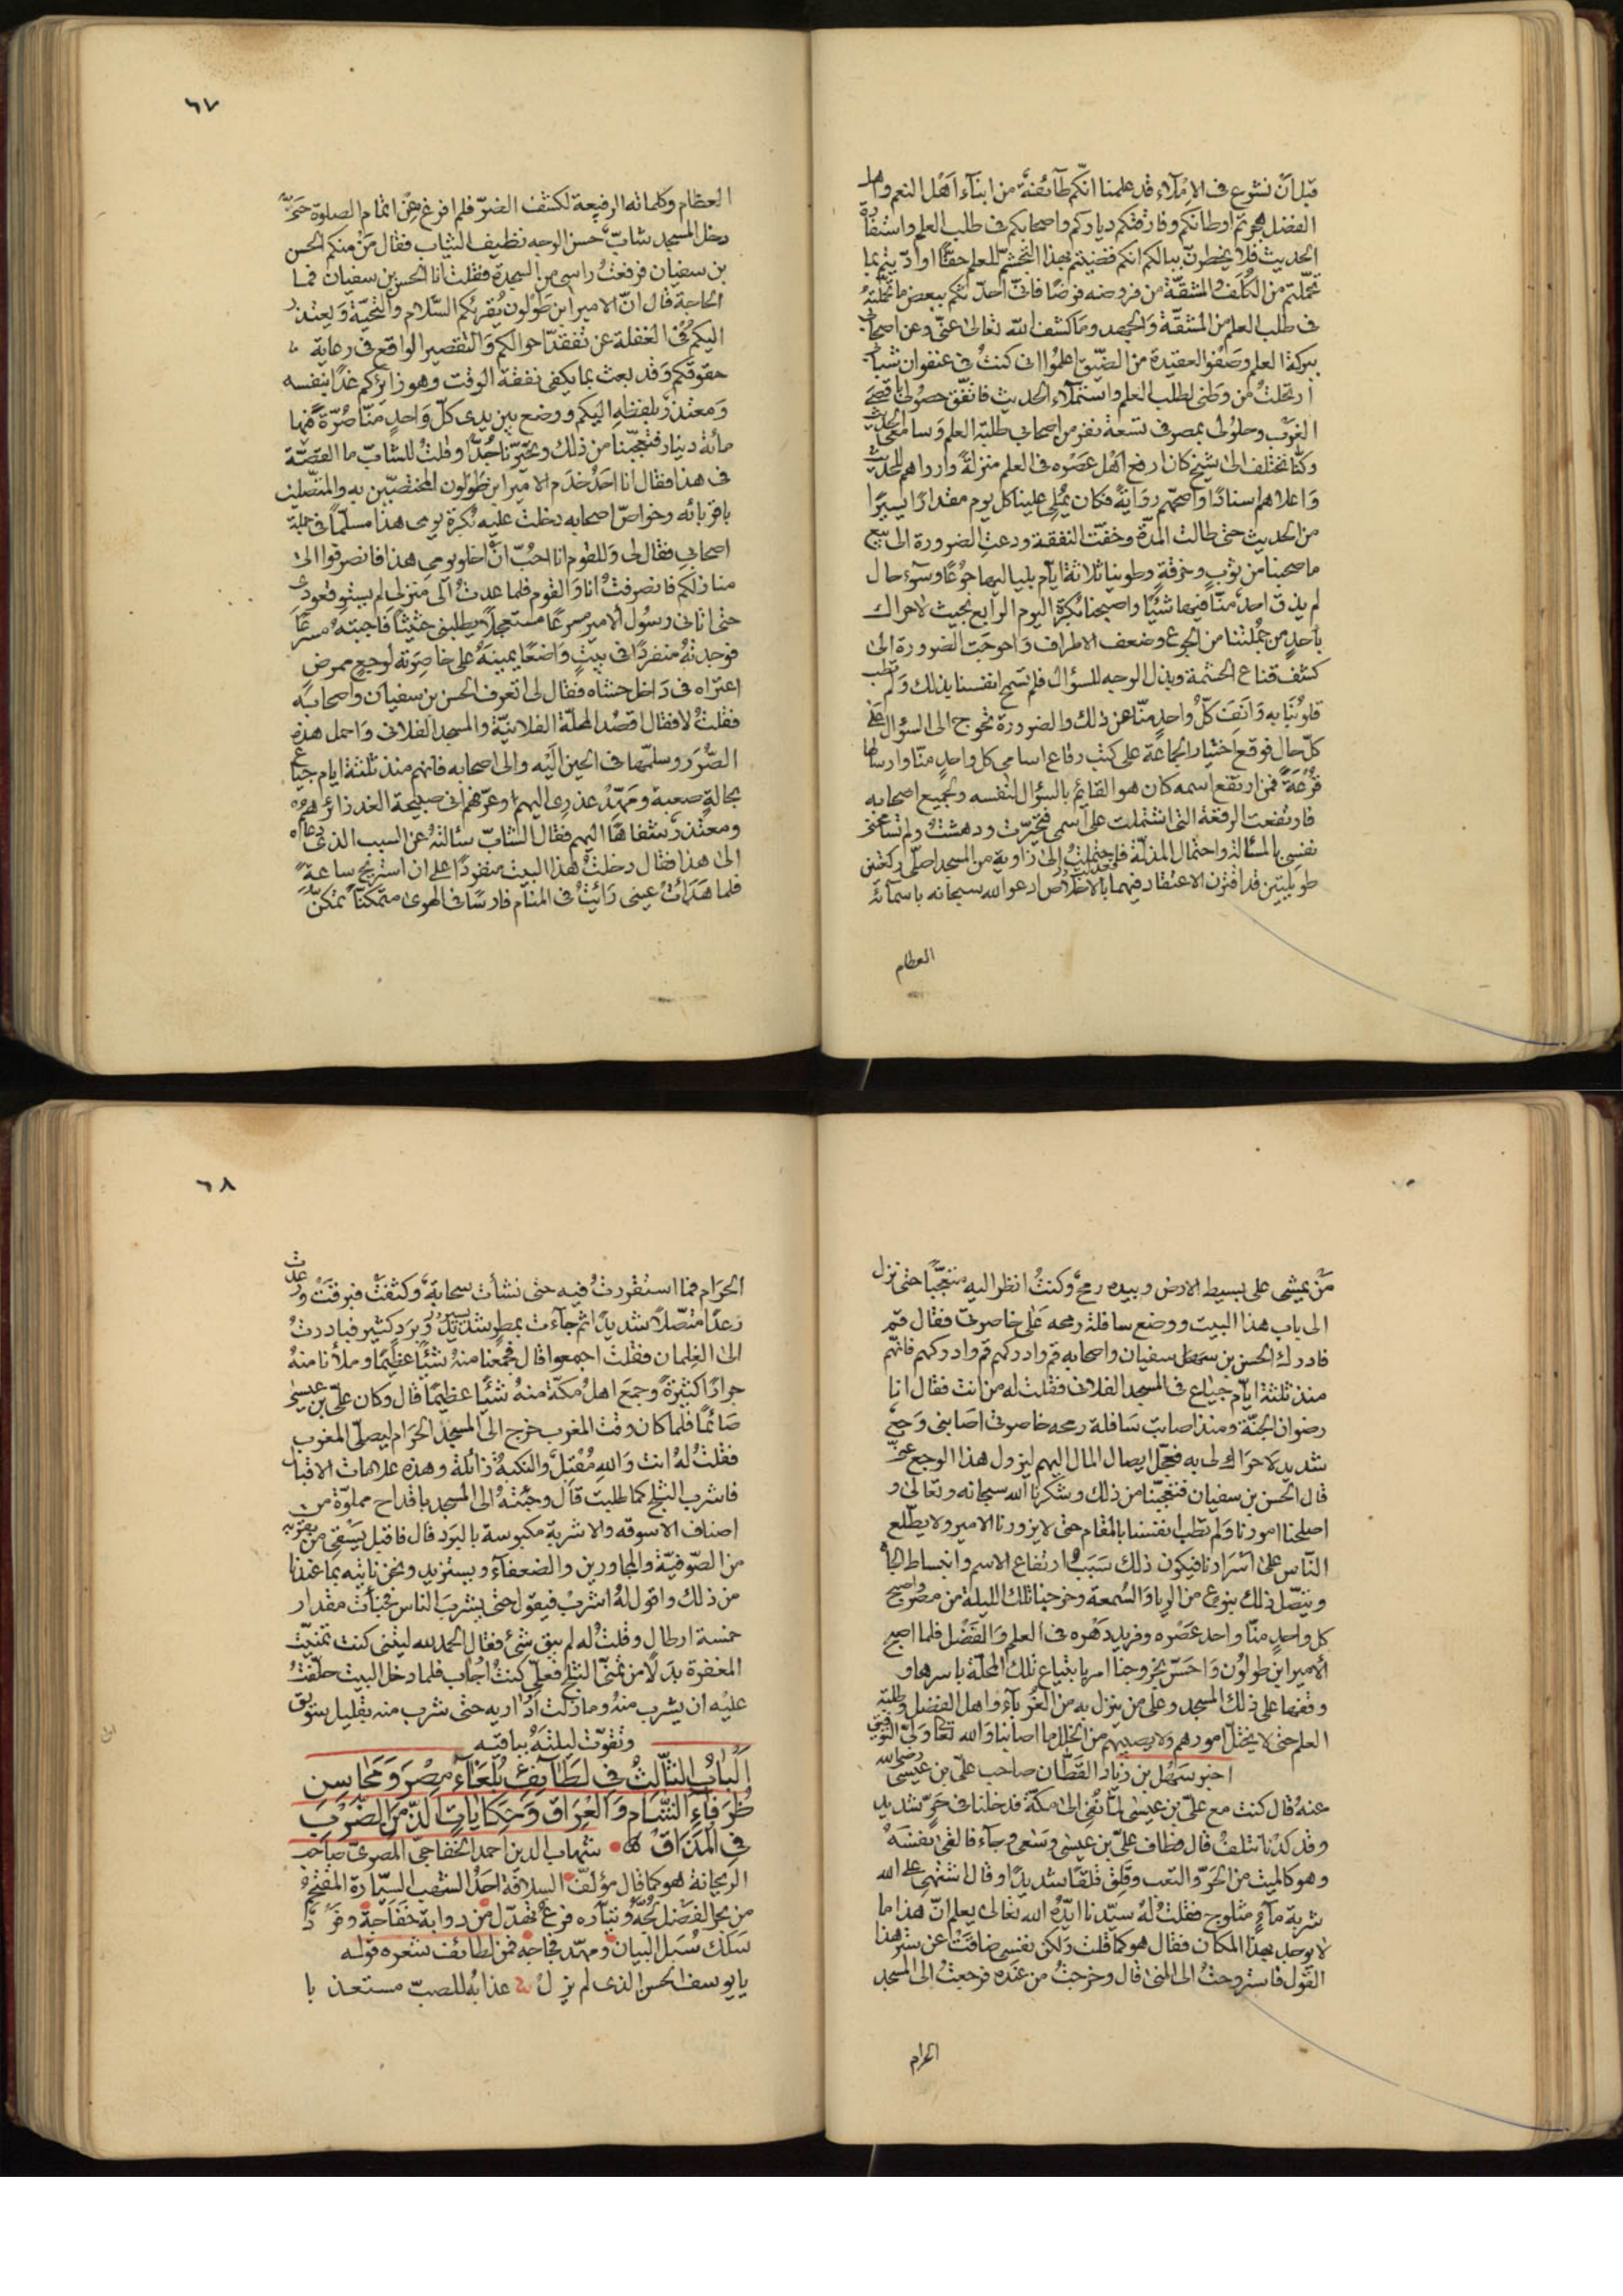 قبل ان نشرع فى الاملاء قد علمنا انكم طآئفة من ابنآء اهل النعم واهل
الفضل هجرتم اوطانكم وفارقتكم دياركم واصحابكم فى طلب العلم واستفادة
الحديث فلا يخطرن ببالكم انكم قضيتم بهذا التجشم للعلم حقّا او ادّيتم بما
تحمّلتم من الكلف والمشقة من فروضه فرضًا فانّى احدّثكم ببعض ما تحمّلته
فى طلب العلم من المشقّة والجهد وما كشف الله تعالى عنّى وعن اصحابى
ببركة العلم وصفو العقيدة من الضّيق اعلموا انى كنت فى عنفوان شبابى
ارتحلت من وطنى لطلب العلم واستملآء الحديث فاتّفق حصولى باقصى
الغرب وحلولى بمصر فى تسعة نفر من اصحابى طلبة العلم وسامعى الحديث
وكنّا نختلف الى شيخ كان ارفع اهل عصره فى العلم منزلةً وارواهم للحديث
واعلاهم اسنادًا واصحّهم روايةً فكان يملى علينا كل يوم مقدارًا يسيرًا
من الحديث حتى طالت المدّة وخفّت النفقة ودعت الضرورة الى بيع
ما صحبنا من ثوب وخرقة وطوينا ثلاثة ايام بلياليها جوعًا وسوء حال
لم يذق احد منّا فيها شيئًا واصبحنا بكرة اليوم الرابع بحيث لا حراك
باحدٍ من جملتنا من الجوع وضعف الاطراف واحوجت الضرورة الى
كشف قناع الحشمة وبذل الوجه للسؤال فلم تسمح انفسنا بذلك ولم تطب
قلوبنا به وانف كلّ واحدٍ منّا عن ذلك والضرورة تحوج الى السؤال على
كلّ حال فوقع اختيار الجماعة على كتب رقاع اسامى كل واحدٍ منّا وارسالها
قرعةً فمن ارتفع اسمه كان هو القائم بالسؤال لنفسه ولجميع اصحابه
فارتفعت الرقعة التى اشتملت على اسمى فتحيّرت ودهشت ولم تسامحنى
نفسى بالمسألة واحتمال المذلّة فعدلت الى زاوية من المسجد اصلّى ركعتين
طويلتين قد اقترن الاعتقاد فيهما بالاخلاص ادعوا لله سبحانه باسمآئه
العظام
٦٧
العظام وكلماته الرفيعة لكشف الضرّ فلم افرغ عن اتمام الصلوة حتى
دخل المسجد شابّ حسن الوجه نظيف الثياب فقال من منكم الحسن
بن سفيان فرفعت راسى من السجدة فقلت انا الحسن بن سفيان فما
الحاجة قال انّ الامير ابن طولون يقرئكم السّلام والتحيّة ويعتذر
اليكم فى الغفلة عن تفقّد احوالكم والتقصير الواقع فى رعاية
حقوقكم وقد بعث بما يكفى نفقة الوقت وهو زايركم غدًا بنفسه
ومعتذر بلفظه اليكم ووضع بين يدى كلّ واحدٍ منّا صرّة فيها
مائة دينار فتعجّبنا من ذلك وتحيّرنا جدًّا وقلت للشابّ ما القصّة
فى هذا فقال انا احد خدم الامير ابن طولون المختصّين به والمتّصلين
باقربائه وخواصّ اصحابه دخلت عليه بكرة يومى هذا مسلّمًا فى جملة
اصحابى فقال لى وللقوم انا احبّ ان اخلو يومى هذا فانصرفوا الى
منازلكم فانصرفت انا والقوم فلما عدت الى منزلى لم يستو قعودى
حتى اتانى رسول الامير مسرعًا مستعجلًا يطلبنى حثيثًا فاجبته مسرعًا
فوجدته منفردًا فى بيتٍ واضعًا يمينه على خاصرته لوجعٍ ممرضٍ
اعتراه فى داخل حشاه فقال لى اتعرف الحسن بن سفيان واصحابه
فقلت لا فقال اقصد المحلّة الفلانيّة والمسجد الفلانى واحمل هذه
الصّرر وسلّمها فى الحين اليه والى اصحابه فانهم منذ ثلثة ايام جياع
بحالةٍ صعبة ومهّد عذرى اليهم وعرّفهم انى صبيحة الغد زائرهم
ومعتذر شفاهًا اليهم فقال الشابّ سئالته عن السبب الذى دعاه
الى هذا فقال دخلت هذا البيت منفردًا على ان استريح ساعة
فلما هدأت عينى رائيت فى المنام فارسًا فى الهوى متمكّنًا تمكّن
من يمشى على بسيط الارض وبيده رمح وكنت انظر اليه متعجّبًا حتى نزل
الى باب هذا البيت ووضع سافلة رمحه على خاصرتى فقال قم
فادرك الحسن بن سفيان واصحابه قم وادركهم قم وادركهم فانّهم
منذ ثلثة ايّام جياع فى المسجد الفلانى فقلت له من انت فقال انا
رضوان الجنّة ومنذ اصابت سافلة رمحه خاصرتى اصابنى وجع
شديد لا حراك لى به فعجّل ايصال المال اليهم ليزول هذا الوجع عنّى
قال الحسن بن سفيان فتعجّبنا من ذلك وشكرنا الله سبحانه وتعالى و
اصلحنا امورنا ولم تطب انفسنا بالمقام حتى لا يزورنا الامير ولا يطّلع
النّاس على اسرارنا فيكون ذلك سبب ارتفاع الاسم وانبساط الجاه
ويتّصل ذلك بنوع من الريا والسّمعة وخرجنا تلك الليلة من مصر واصبح
كل واحدٍ منّا واحد عصره وفريد دهره فى العلم والفضل فلما اصبح
الامير ابن طولون واحسّ بخروجنا امر بابتياع تلك المحلّة باسرها و
وقفها على ذلك المسجد وعلى من ينزل به من الغربآء واهل الفضل وطلبة
العلم حتى لا يختلّ امورهم ولا يصيبهم من الخلل ما اصابنا والله تعا ولىّ التوفيق
اخبر سهل بن زياد القطّان صاحب علىّ بن عيسى رضى الله
عنه قال كنت مع علىّ بن عيسى لمّا نفى الى مكّة فدخلنا فى حرّ شديد
وقد كدنا نتلف قال وطاف علىّ بن عيسى وسعى وجآء فالقى بنفسه
وهو كالميت من الحرّ والتعب وقلق قلقًا شديدًا وقال اشتهى على الله
شربة مآءٍ مثلوج فقلت له سيّدنا ايّده الله تعالى يعلم انّ هذا ما
لا يوجد بهذا المكان فقال هو كما قلت ولكن نفسى ضاقت عن ستر هذا
القول فاستروحت الى المنى قال وخرجت من عنده فرجعت الى المسجد
الحرام
٦٨
الحرام فما استقررت فيه حتى نشأت سحابة وكثفت فبرقت ورعدت
رعدًا متّصلًا شديدًا ثم جآءت بمطر يسير وبرد كثير فبادرت
الى الغلمان فقلت اجمعوا قال فجمعنا منه شيئًا عظيمًا وملأنا منه
جرارًا كثيرة وجمع اهل مكّة منه شيئًا عظيمًا قال وكان علىّ بن عيسى
صائمًا فلما كان وقت المغرب خرج الى المسجد الحرام ليصلّى المغرب
فقلت له انت والله مقبل والنكبة زائلة وهذه علامات الاقبال
فاشرب الثلج كما طلبت قال وجئته الى المسجد باقداح مملوّة من
اصناف الاسوقه والاشربة مكبوسة بالبرد قال فاقبل يسقى من بقربه
من الصّوفيّة والمجاورين والضعفآء ويستزيد ونحن نأتيه بما عندنا
من ذلك واقول له اشرب فيقول حتى يشرب الناس فخبأت مقدار
خمسة ارطال وقلت له لم يبق شئ فقال الحمد لله ليتنى كنت تمنّيت
المغفرة بدلًا من تمنّى الثلج فعلّى كنت اجاب فلما دخل البيت حلفت
عليه ان يشرب منه وما زلت اداريه حتى شرب منه بقليل سويق
وتقوّت ليلته بباقيه
الباب الثالث فى لطايف بلغآء مصر ومحاسن
ظرفاء الشام والعراق وحكايات الذّ من الضرب
فى المذاق شهاب الدين احمد الخفاجى المصرى صاحب
الريحانة هو كما قال مؤلف السلافة احد الشهب السيّارة المقتحم
من بحر الفضل لجّه وتيّاره فرع تهدّل من ذوابة خفاجة وفرد
سلك سبل البيان ومهّد فجاجه فمن لطائف شعره قوله
يا يوسف الحسن الذى لم يزل عذابه للصبّ مستعذبا